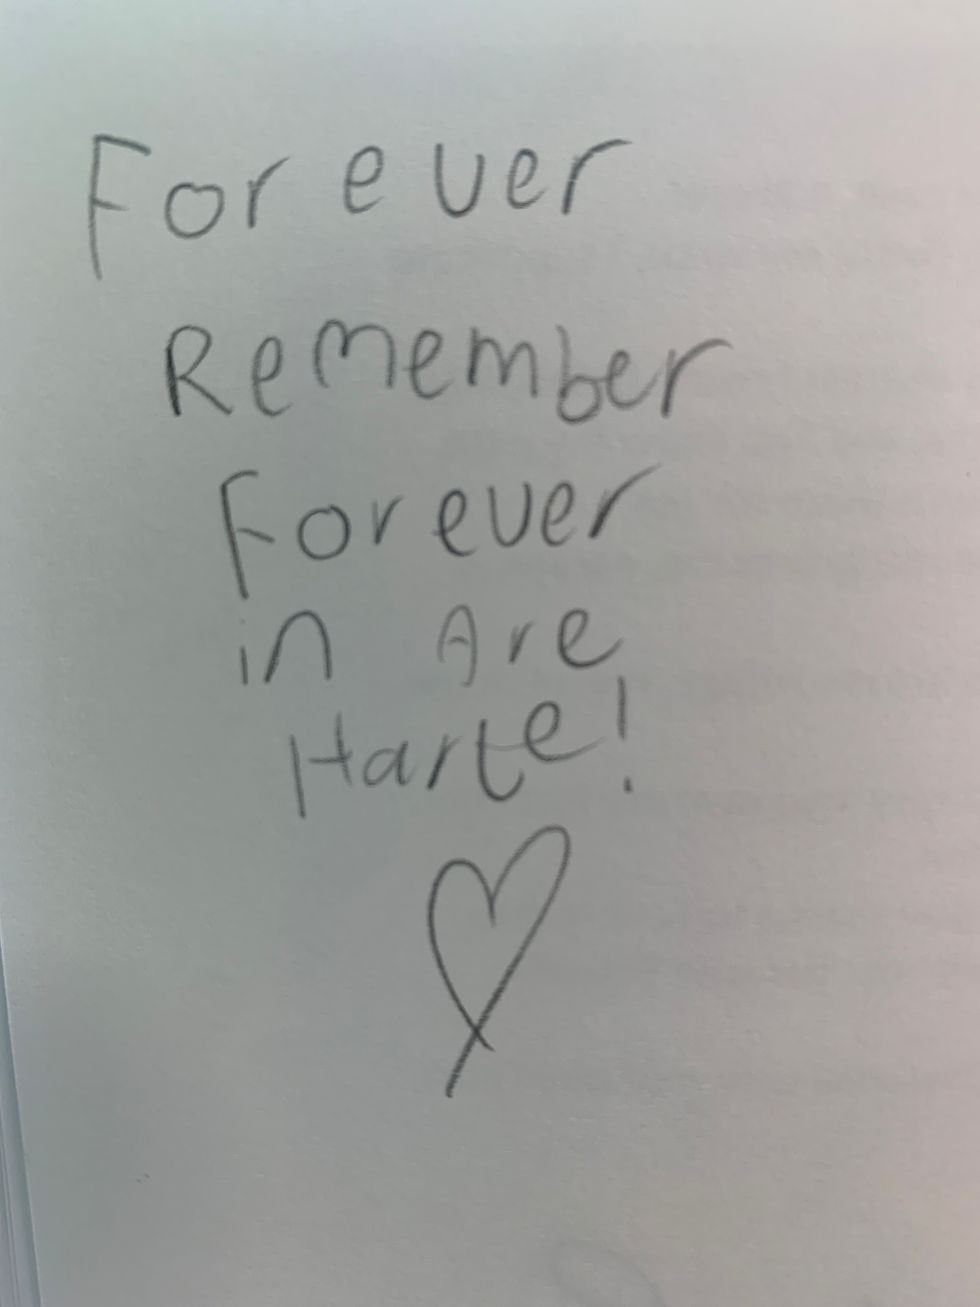 Forever
Remember
Forever
in Are
Harte!